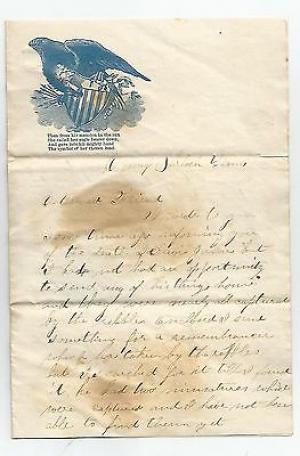 Then from his mansion in the sun
She called her eagle bearer down,
And gave into his mighty hand
The symbol of her chosen land.
Camp
Friend
I wrote to
some time ago informing you
of the death of but
I had not had an opportunity
to send any of his things home
and they were nearly all captured
by the rebbles I
something for a remembrance
which was taken by the rebbles
But he for it till I found
it he had two miniatures which
were captured and I have not been
able to find them yet